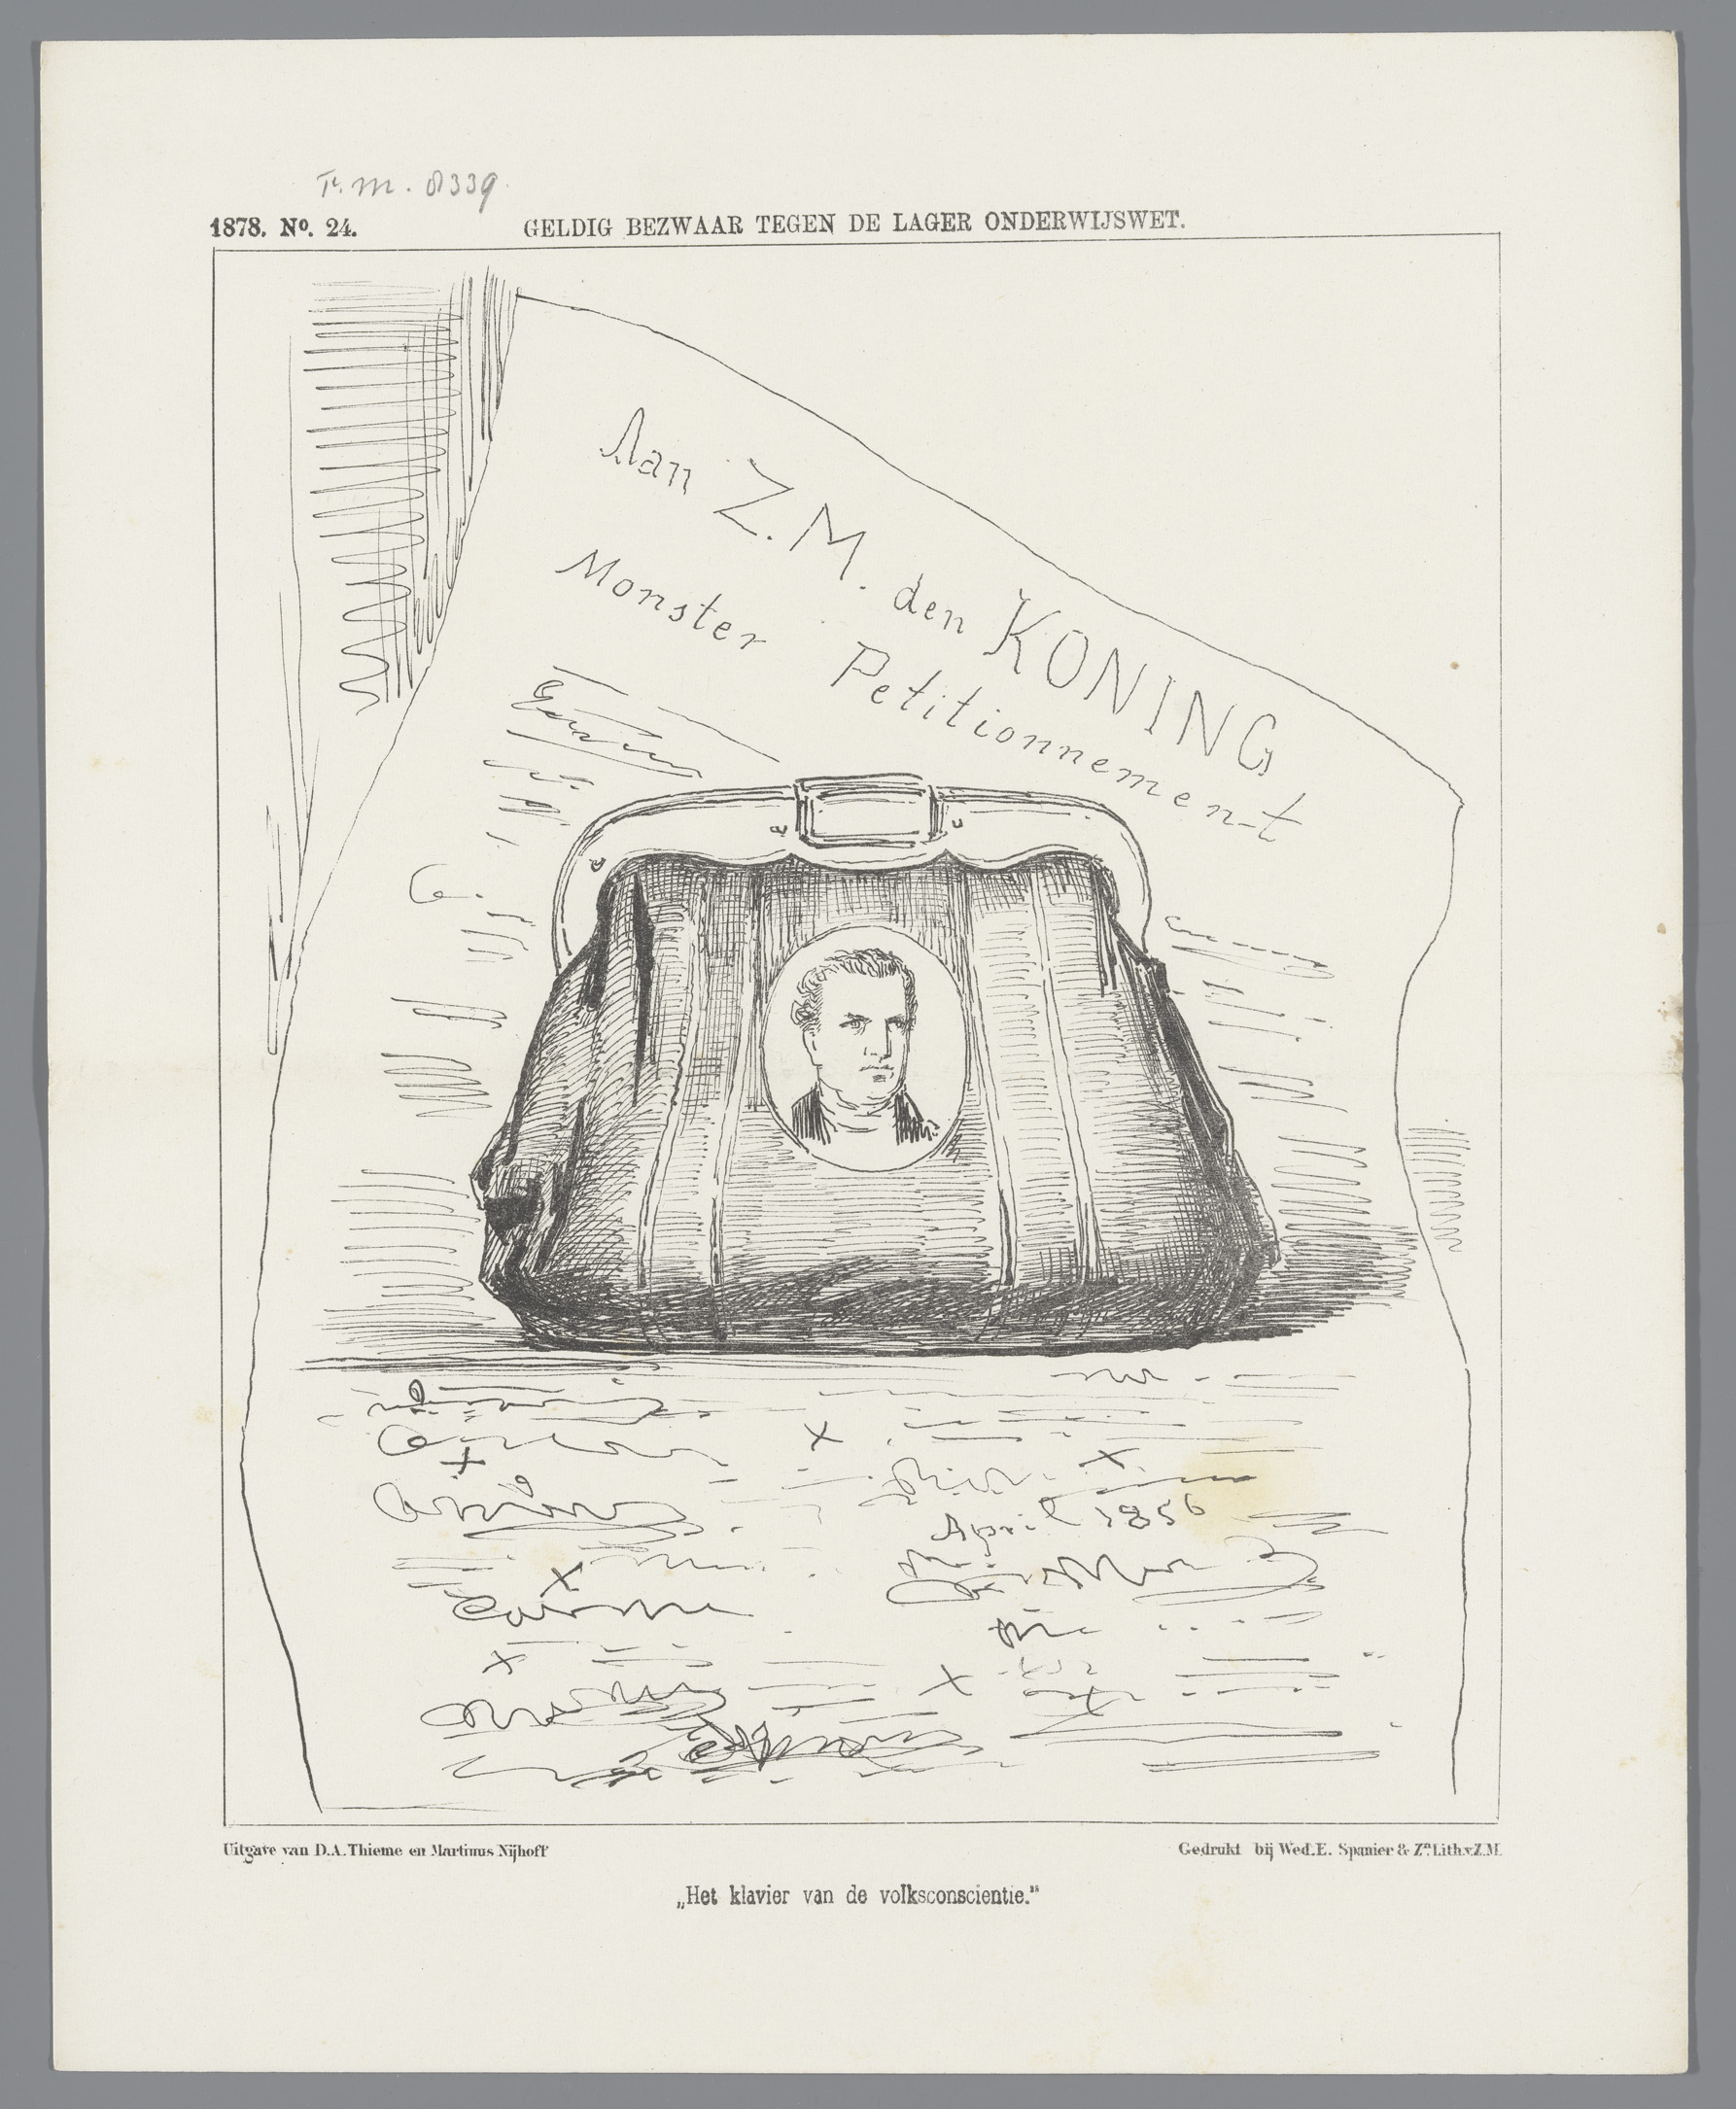 F.M. 8339.
1878. Nº. 24.
GELDIG BEZWAAR TEGEN DE LAGER ONDERWIJSWET.
Aan Z.M. den KONING
Monster Petitionnement
April 1856
Uitgave van D.A. Thieme en Martinus Nijhoff
Gedrukt bij Wed. E. Spanier & Zn. Lith. v. Z.M.
„Het klavier van de volksconscientie.”